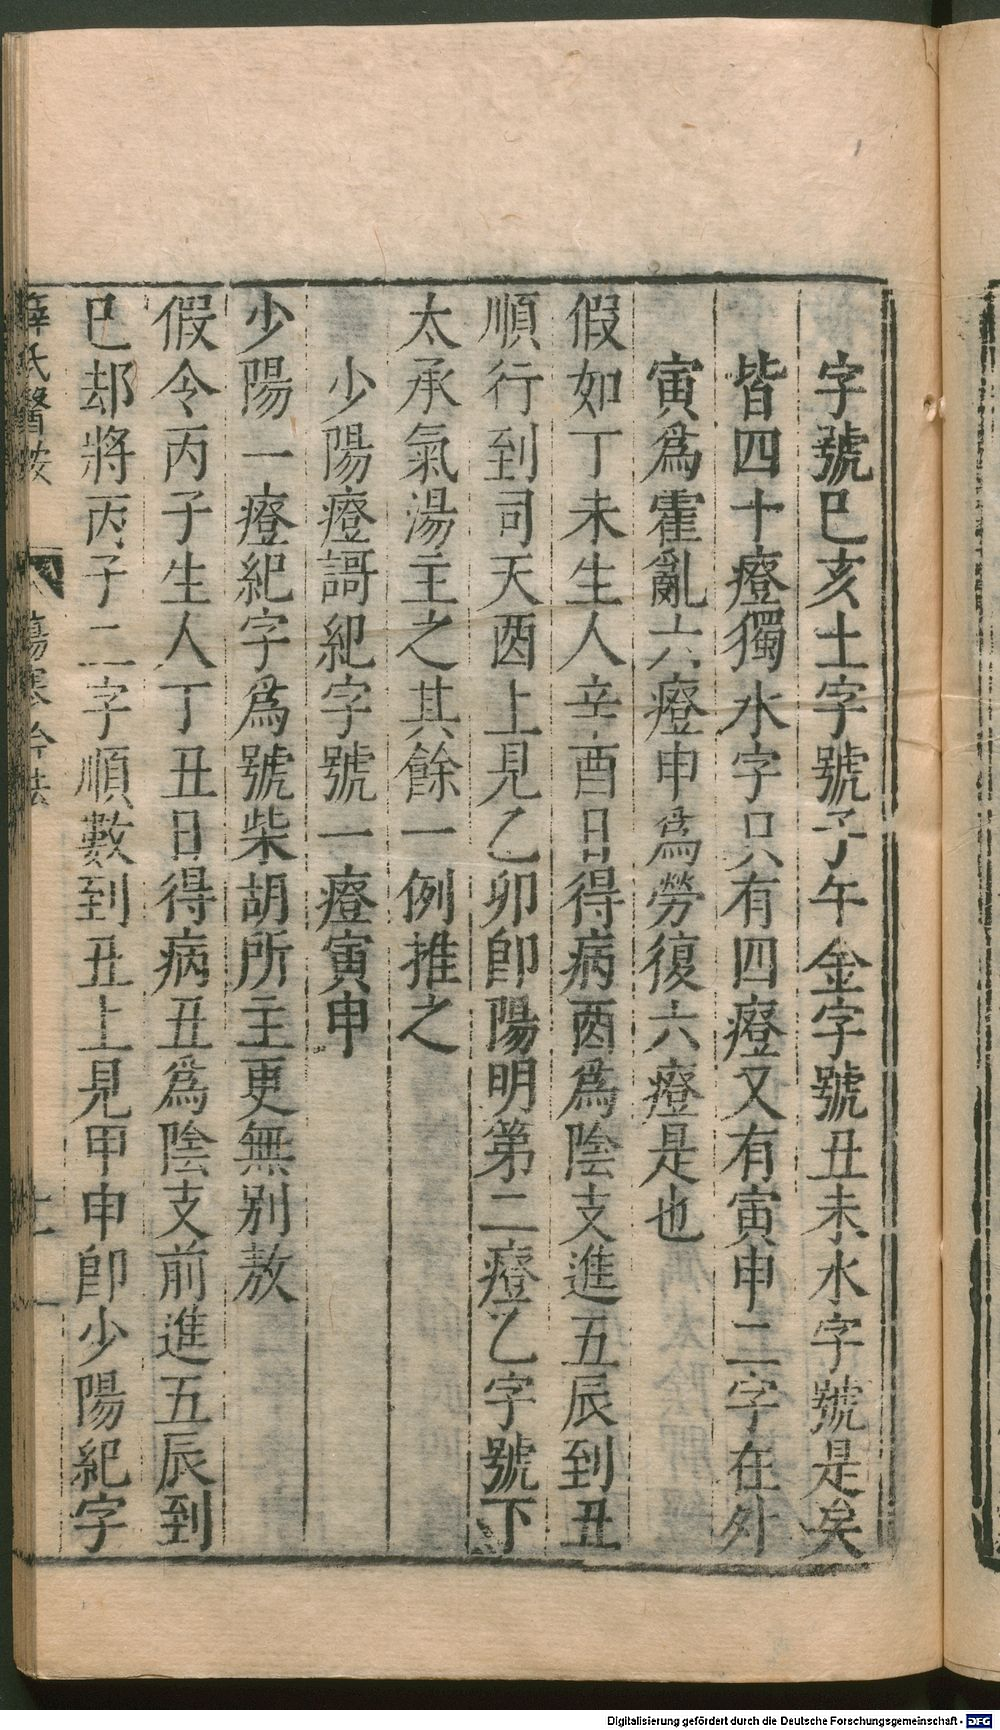 字號巳亥土字號子午金字號丑未水字號是矣
皆四十癋獨水字只有四癋又有寅申二字在外
寅爲霍亂六癋申爲勞復六癋是也
假如丁未生人辛酉日得病酉爲陰支進五辰到丑
順行到司天酉上見乙卯卽陽明第二癋乙字號下
太承氣湯主之其餘一例推之
少陽癋謌紀字號一癋寅申
少陽一癋紀字爲號柴胡所主更無别敖
假令丙子生人丁丑日得病丑爲陰支前進五辰到
巳却將丙子二字順數到丑上見甲申卽少陽紀字
薛氏醫按
傷寒鈐法
十一
Digitalisierung gefördert durch die Deutsche Forschungsgemeinschaft - DFG